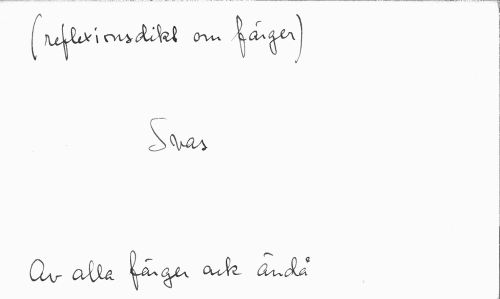 (reflexionsdikt om färger)
Svas
Av alla färger ack ändå